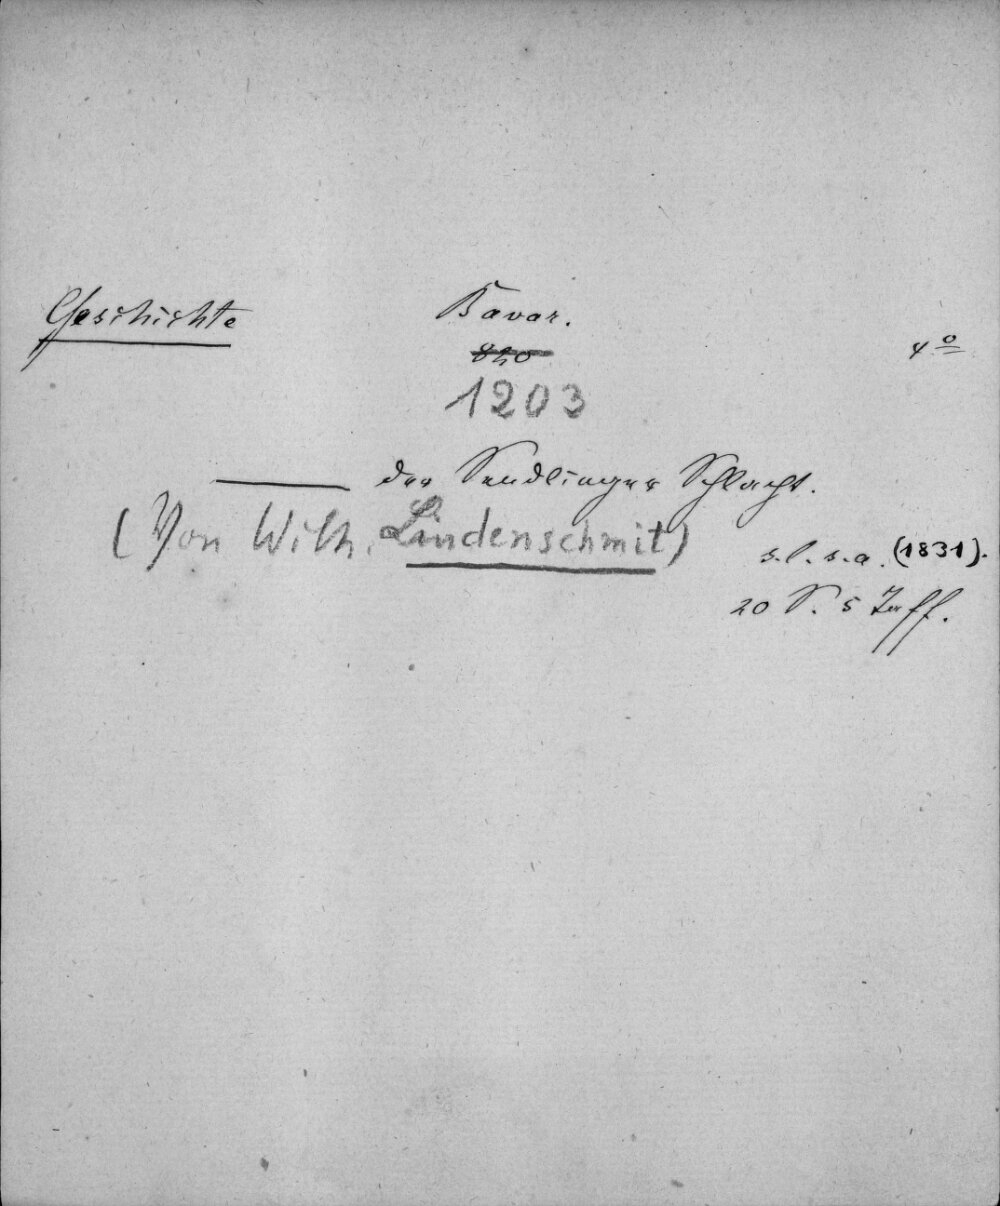 Geschichte
Bavar.
4º
820
1203
——— der Sendlinger Schlacht.
(Von Wilh. Lindenschmit)
s. l. s. a. (1831).
20 S. 5 Taff.